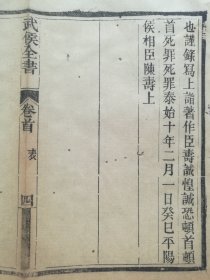 也謹錄寫上詣著作臣壽誠惶誠恐頓首頓
首死罪死罪泰始十年二月一日癸巳平陽
侯相臣陳壽上
武侯全書
卷首
表
四